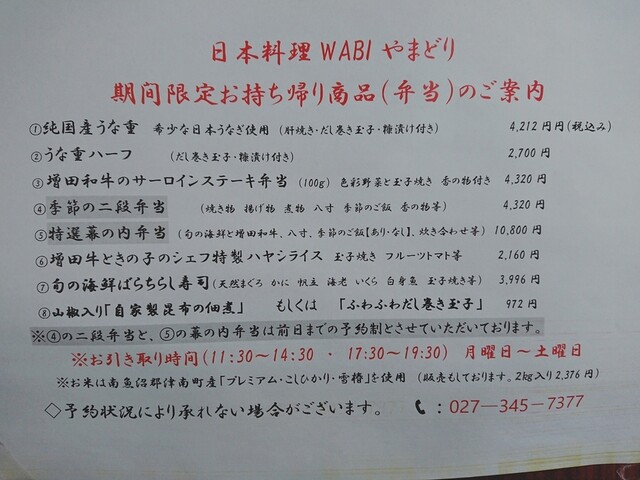 日本料理 WABI やまどり
期間限定お持ち帰り商品(弁当)のご案内
①純国産うな重 希少な日本うなぎ使用 (肝焼き・だし巻き玉子・糠漬け付き) 4,212円円(税込み)
②うな重ハーフ (だし巻き玉子・糠漬け付き) 2,700円
③増田和牛のサーロインステーキ弁当 (100g) 色彩野菜と玉子焼き 香の物付き 4,320円
④季節の二段弁当 (焼き物 揚げ物 煮物 八寸 季節のご飯 香の物等) 4,320円
⑤特選幕の内弁当 (旬の海鮮と増田和牛、八寸、季節のご飯【あり・なし】、炊き合わせ等) 10,800円
⑥増田牛ときの子のシェフ特製ハヤシライス 玉子焼き フルーツトマト等 2,160円
⑦旬の海鮮ばらちらし寿司(天然まぐろ かに 帆立 海老 いくら 白身魚 玉子焼き等) 3,996円
⑧山椒入り「自家製昆布の佃煮」 もしくは 「ふわふわだし巻き玉子」 972円
※④の二段弁当と、⑤の幕の内弁当は前日までの予約制とさせていただいております。
※お引き取り時間(11:30～14:30 ・ 17:30～19:30) 月曜日～土曜日
※お米は南魚沼郡津南町産「プレミアム・こしひかり・雪椿」を使用 (販売もしております。2kg入り2,376円)
◇予約状況により承れない場合がございます。 📞:027―345－7377